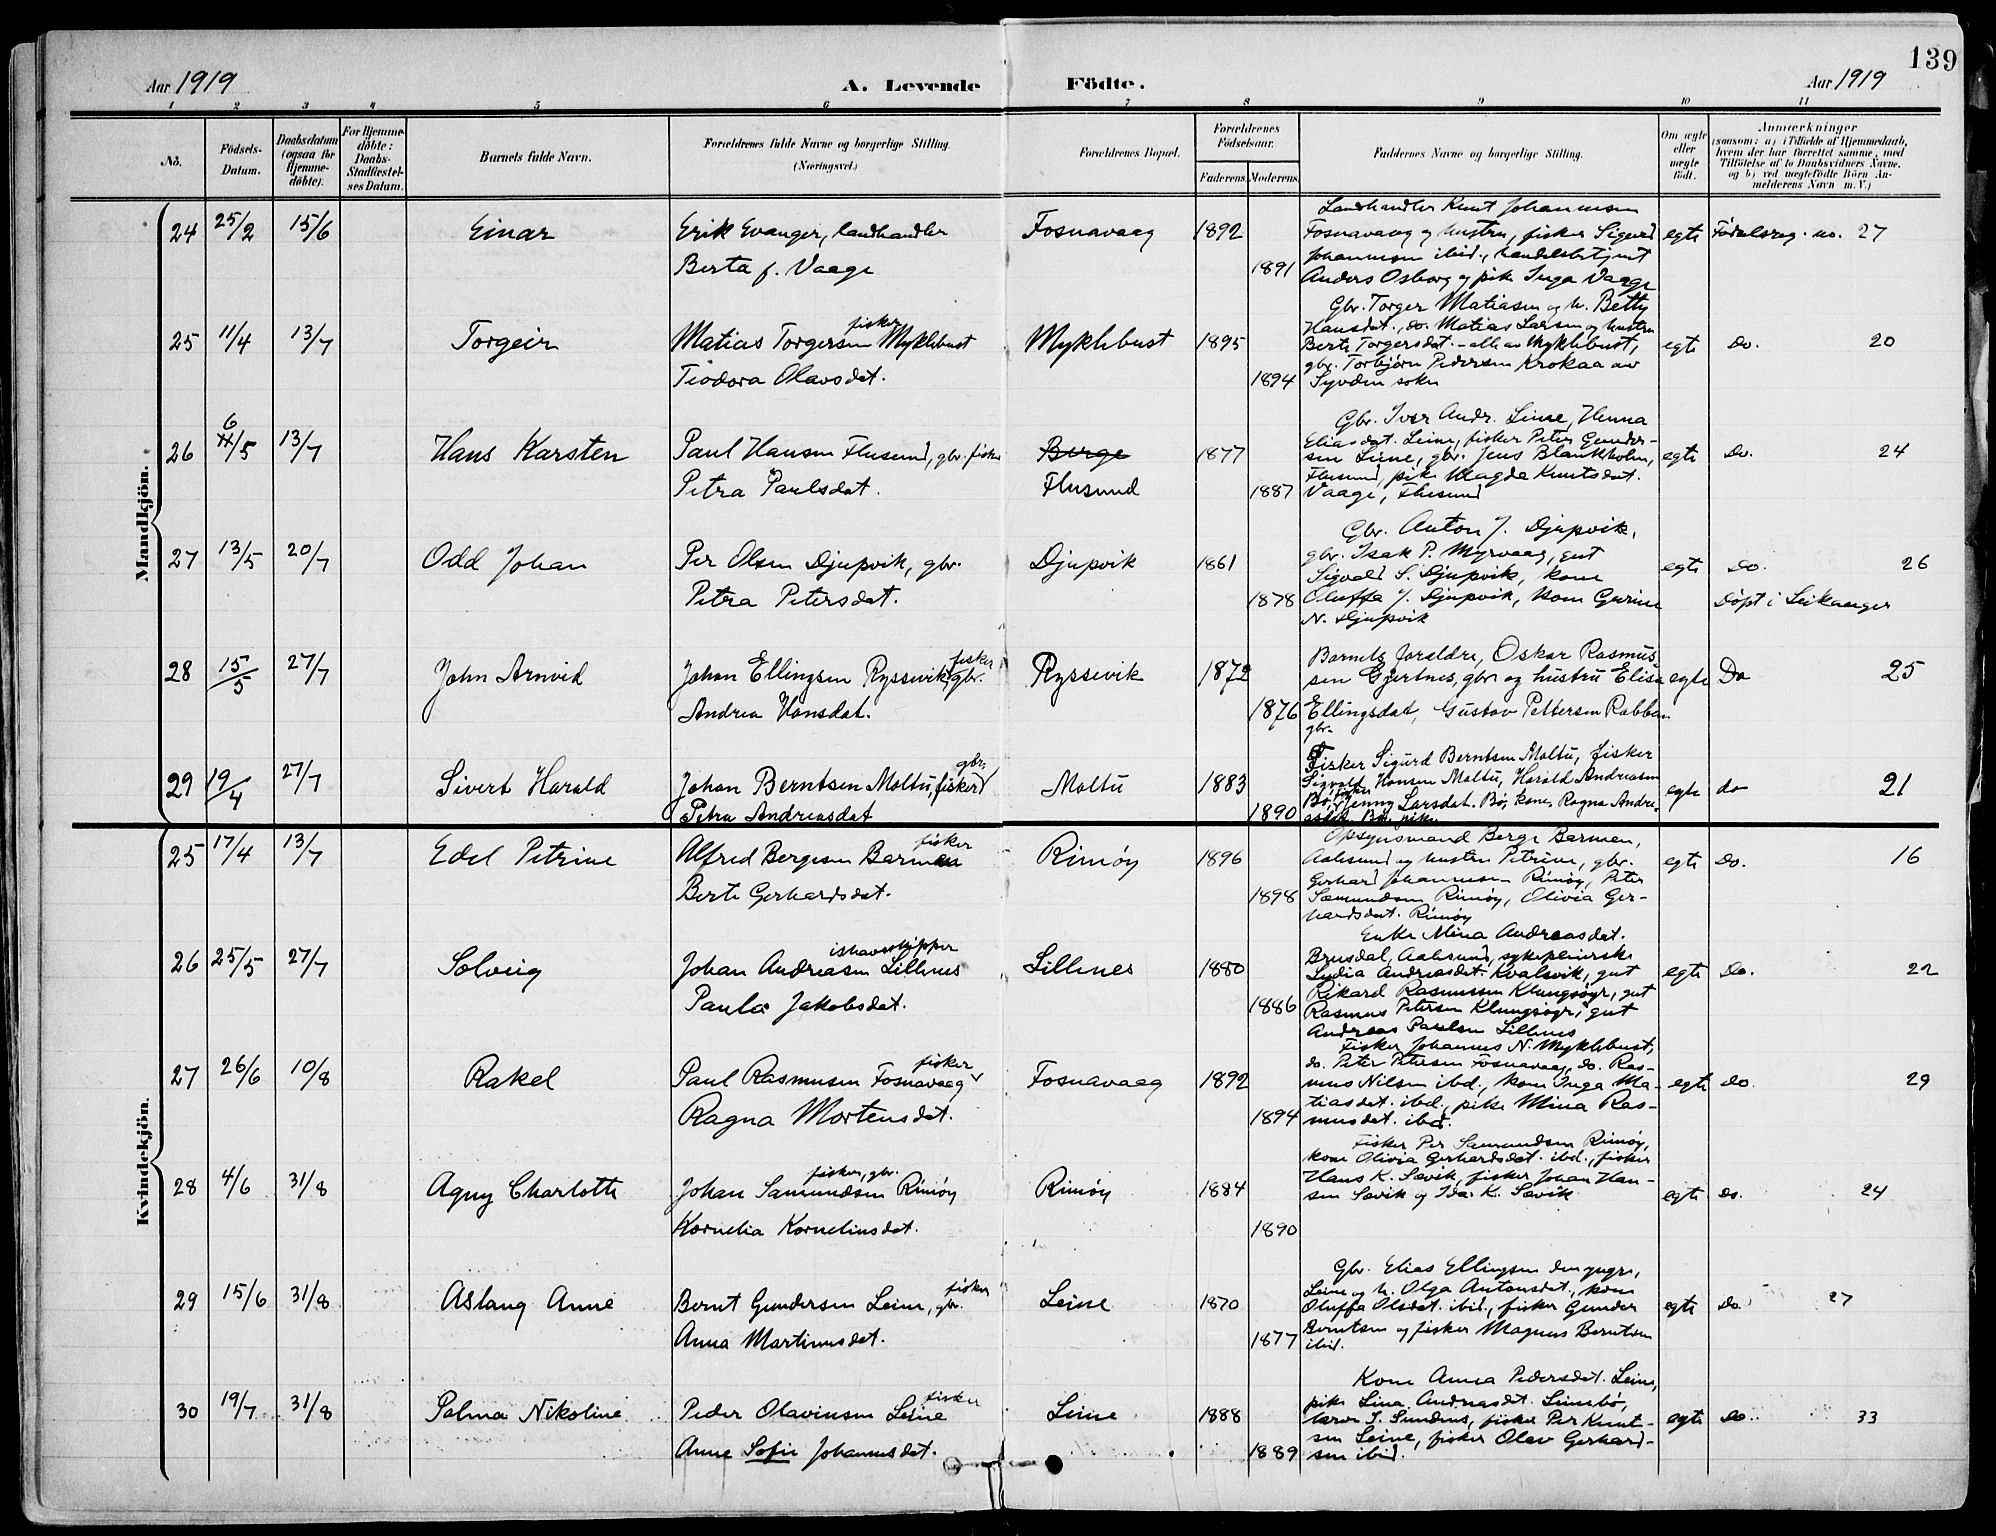 139
Aar 1919
A. Levende Födte.
Aar 1919
1 2 3 4 5 6 7 8 9 10 11
No.
Födsels-Datum.
Daabsdatum (ogsaa for Hjemme-döbte).
For Hjemme-döbte: Daabs-Stadfæstel-ses Datum.
Barnets fulde Navn.
Forældrenes fulde Navne og borgerlige Stilling.
(Næringsvei.)
Forældrenes Bopæl.
Forældrenes Födselsaar.
Faderens. Moderens.
Faddernes Navne og borgerlige Stilling.
Om ægte eller uægte født.
Anmærkninger
(saasom: a) i Tilfælde af Hjemmedaab,
hvem der har forrettet samme, med
Tilföielse af to Daabsvidners Navne,
og b) ved uægtefödte Börn An-
melderens Navn m. V.)
Mandkjön.
24 25/2 15/6 Einar Erik Evanger, landhandler Fosnavaag 1892 egte Fødselsreg. no. 27
Berta f. Vaage 1891
Landhandler Knut Johannessen
Fosnavaag og hustru, fisker Sigurd
Johannessen ibid., handelsbetjent
Anders Osborg og pike Inga Vaage
25 11/4 13/7 Torgeir Matias Torgersen Myklebust fisker Myklebust 1895 egte Do. 20
Tiodora Olavsdat. 1894
Gbr. Torger Matiasen og h. Betty
Hansdat., do. Matias Larsen og hustru
Berte Torgersdat. - alle av Myklebust,
gbr. Torbjørn Pedersen Krokaa av
Syvden sokn
26 6/5 13/7 Hans Karsten Paul Hansen Flusund, gbr. fisker Berge 1877 egte Do. 24
Petra Paulsdat. Flusund 1887
Gbr. Iver Andr. Leine, Hanna
Eliasdat. Leine, fisker Peter Gunder-
sen Leine, gbr. Jens Blankholm,
Flusund, pike Magda Knutsdat.
Vaage, Flusund
27 13/5 20/7 Odd Johan Per Olsen Djupvik, gbr. Djupvik 1861 egte Do. 26
Petra Petersdat. 1878 Døpt i Leikanger
Gbr. Anton J. Djupvik,
gbr. Isak P. Myrvaag, gut
Sigvald S. Djupvik, kone
Oluffa J. Djupvik, kone Gurine
N. Djupvik
28 15/5 27/7 John Arnvid Johan Ellingsen Ryssevik, fisker gbr. Ryssevik 1872 egte Do 25
Andrea Hansdat. 1876
Barnets foraldre, Oskar Rasmus
sen Gjertnes, gbr og hustru Elisa
Ellingsdat, Gustav Pettersen Rabben
gbr.
29 19/4 27/7 Sivert Harald Johan Berntsen Moltu, fisker gbr. Moltu 1883 egte do 21
Petra Andreasdat 1890
Fisker Sigurd Berntsen Moltu, fisker
Sigvald Hansen Moltu, Harald Andreasen
Bø, fisker, Jenny Larsdat. Bø, kone, Ragna Andre-
asdt. Bø, pike
Kvindekjön.
25 17/4 13/7 Edel Petrine Alfred Bergesen Barmen fisker Rimøy 1896 egte Do. 16
Berte Gerhardsdat. 1898
Opsynsmand Berge Barmen,
Aalesund og hustru Petrine, gbr.
Gerhard Johannessen Rimøy, Peter
Samundsen Rimøy, Olivia Ger-
hardsdat. Rimøy
26 25/5 27/7 Solveig Johan Andreasen Lillenes ishavsskipper Lillenes 1880 egte Do. 22
Paula Jakobsdat. 1886
Enke Mina Andreasdat.
Brusdal, Aalesund, sykepleierske
Lydia Andreasdat. Kvalsvik, gut
Rikard Rasmussen Klungsøyr, gut
Rasmus Petersen Klungsøyr, gut
Andreas Paulsen Lillenes
27 26/6 10/8 Rakel Paul Rasmusen Fosnavaag fisker Fosnavaag 1892 egte Do. 29
Ragna Mortensdat. 1894
Fisker Johannes N. Myklebust,
do. Peter Petersen Fosnavaag, do. Ras-
mus Nilsen ibd., kone Inga Ma-
tiasdat. ibd., pike Mina Ras-
musdat. ibd.
28 4/6 31/8 Agny Charlotte Johan Samundsen Rimøy fisker, gbr. Rimøy 1884 egte Do. 24
Kornelia Korneliusdat. 1890
Fisker Per Samundsen Rimøy,
kone Olivia Gerhardsdat. ibd., fisker
Hans K. Sævik, fisker Johan Han-
sen Sævik og Ida K. Sævik
29 15/6 31/8 Aslaug Anne Bernt Gundersen Leine, fisker gbr. Leine 1870 egte Do. 27
Anna Martinusdat. 1877
Gbr. Elias Ellingsen den yngre,
Leine og h. Olga Antonsdat., kone
Oluffa Olsdat. ibid., fisker Gunder
Berntsen og fisker Magnus Berntsen
ibid.
30 19/7 31/8 Palma Nikoline Peder Olavinsen Leine fisker Leine 1888 egte Do. 33
Anne Sofie Johannesdat. 1889
Kone Anna Pedersdat. Leine,
pike Lina Andreasdat. Leinebø,
lærer S. Sundnes, fisker Per Knut-
sen Leine, fisker Olav Gerhard-
sen ibid.